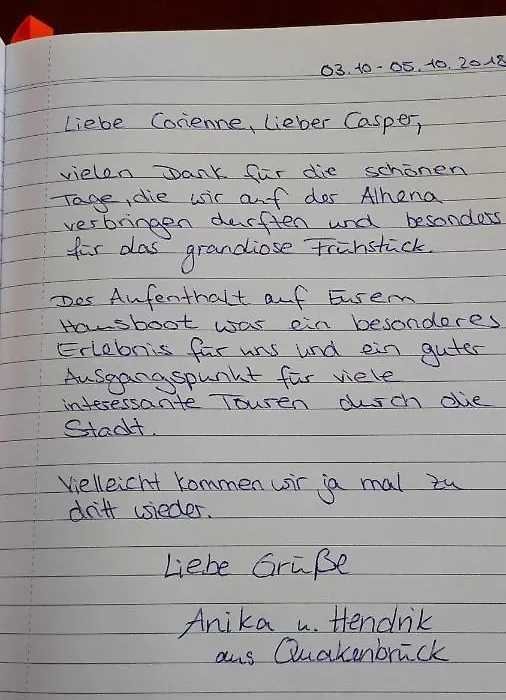 03.10 - 05.10.2018
Liebe Corienne, Lieber Casper,
vielen Dank für die schönen
Tage, die wir auf der Athena
verbringen durften und besonders
für das grandiose Frühstück.
Der Aufenthalt auf Eurem
Hausboot war ein besonderes
Erlebnis für uns und ein guter
Ausgangspunkt für viele
interessante Touren durch die
Stadt.
Vielleicht kommen wir ja mal zu
dritt wieder.
Liebe Grüße
Anika u. Hendrik
aus Quakenbrück